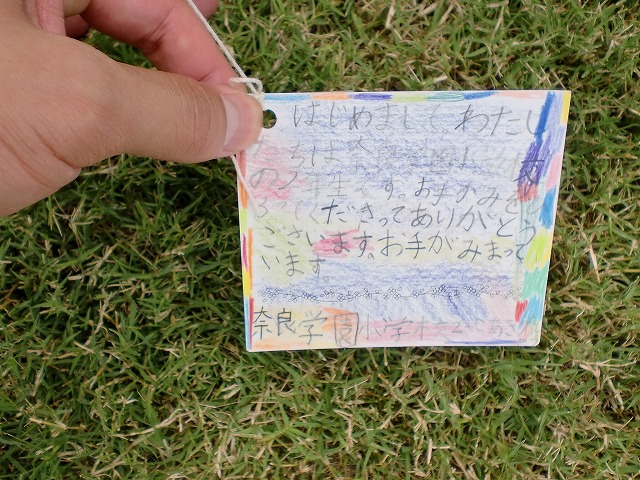 はじめまして わたし
ちは奈良学園小学校
の1年生です。お手がみを
くださってありがとう
ございます。お手がみまって
います
奈良学園小学